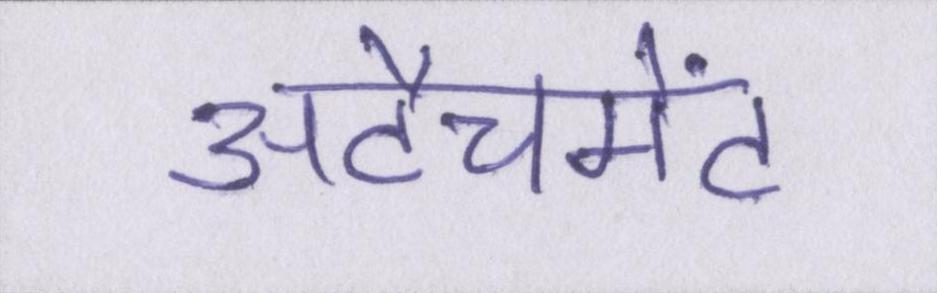 अटैचमेंट